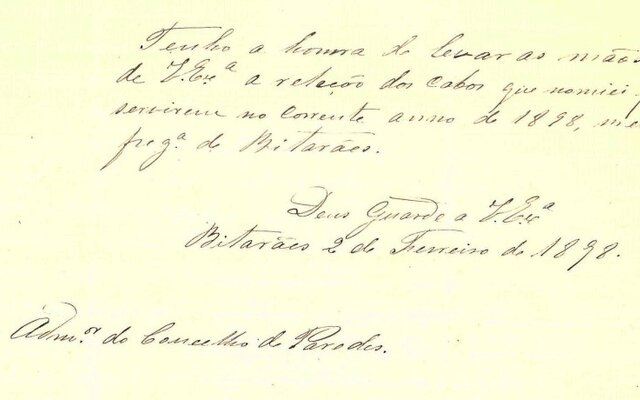 Tenho a honra de levar as mãos
de V. Ex.ª a relação dos cabos que nomiei
servirem no corrente anno de 1898,
freg.ª de Bitarães.
Deus Guarde a V. Ex.ª
Bitarães 2 de Fevreiro de 1898.
Adm.or do Concelho de Paredes.